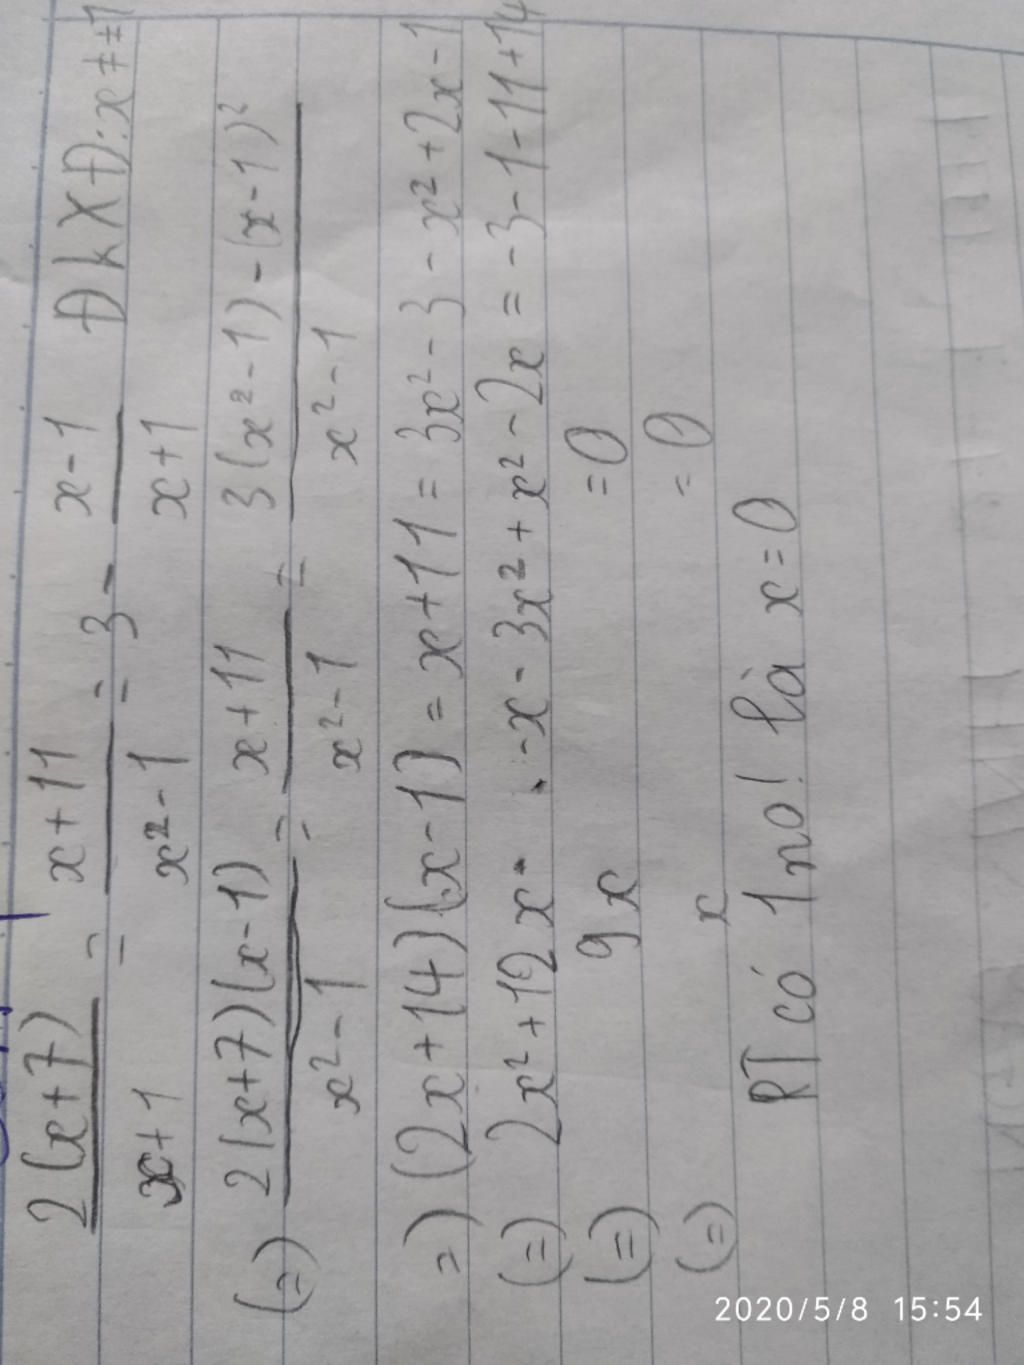 2(x+7)/x+1 - x+11/x²-1 = 3 - x-1/x+1 ĐKXĐ: x ≠ ±1
(=) 2(x+7)(x-1)/x²-1 - x+11/x²-1 = 3(x²-1)-(x-1)²/x²-1
=) (2x+14)(x-1) = x+11 = 3x²-3-x²+2x-1
(=) 2x²+12x -x-3x²+x²-2x = -3-1-11+14
(=) 9x = 0
(=) x = 0
PT có 1 no! là x=0
2020/5/8 15:54